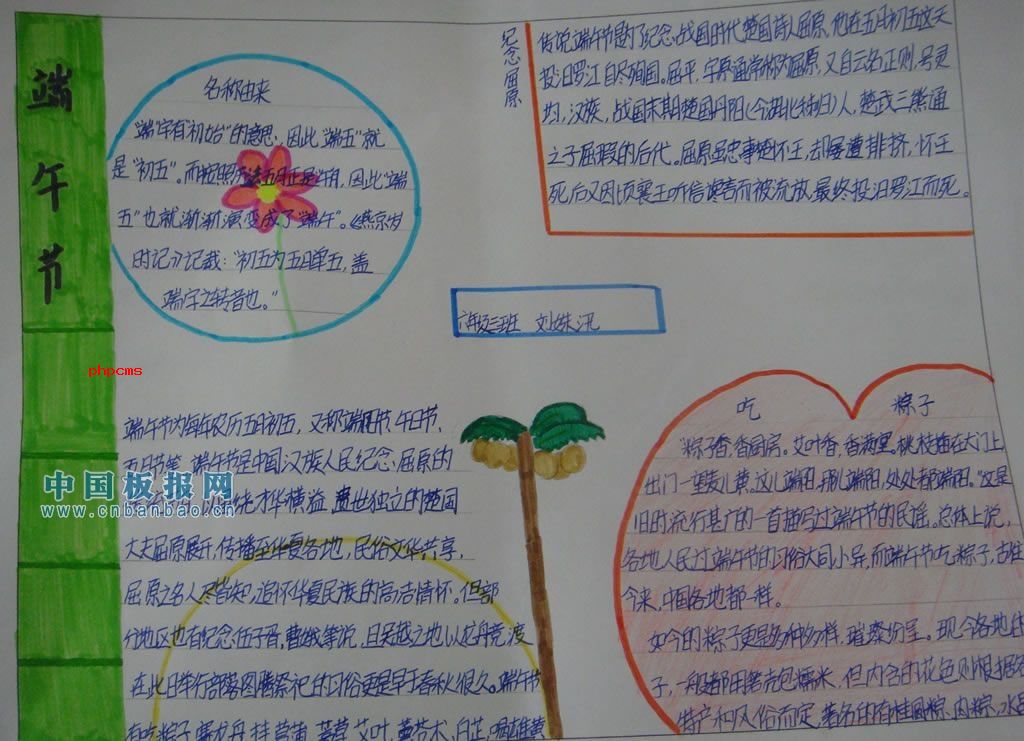 端午节
名称由来
"端"字有"初始"的意思，因此"端五"就
是"初五"。而按照历法五月正是"午"月，因此"端
五"也就渐渐演变成了"端午"。《燕京岁
时记》记载："初五为五月单五，盖
端字之转音也。"
纪念屈原
传说端午节是为了纪念战国时代楚国诗人屈原，他在五月初五这天
投汨罗江自尽殉国。屈平，字原通常称为屈原，又自云名正则，号灵
均，汉族，战国末期楚国丹阳（今湖北秭归）人，楚武王熊通
之子屈瑕的后代。屈原虽忠事楚怀王，却屡遭排挤，怀王
死后又因顷襄王听信谗言而被流放，最终投汨罗江而死。
六年级三班 刘姝汛
phpcms
端午节为每年农历五月初五，又称端阳节、午日节、
五月节等。端午节是中国汉族人民纪念屈原的
才华横溢、遗世独立的楚国
大夫屈原展开，传播至华夏各地，民俗文华共享，
屈原之名人尽皆知，追怀华夏民族的高洁情怀。但部
分地区也有纪念伍子胥、曹娥等说，且吴越之地以龙舟竞渡
在此日举行部落图腾祭祀的习俗更是早于春秋很久。端午节
有吃粽子，赛龙舟，挂菖蒲、艾叶，薰苍术、白芷，喝雄黄
中国板报网
www.cnbanbao.cn
吃 粽子
"粽子香，香厨房。艾叶香，香满堂。桃枝插在大门上，
出门一望麦儿黄。这儿端阳，那儿端阳，处处都端阳。"这是
旧时流行甚广的一首描写过端午节的民谣。总体上说，
各地人民过端午节的习俗大同小异，而端午节吃粽子，古往
今来，中国各地都一样。
如今的粽子更是多种多样，璀璨纷呈。现今各地的
子，一般都用箬壳包糯米，但内含的花色则根据各
特产和风俗而定，著名的有桂圆粽、肉粽、水晶